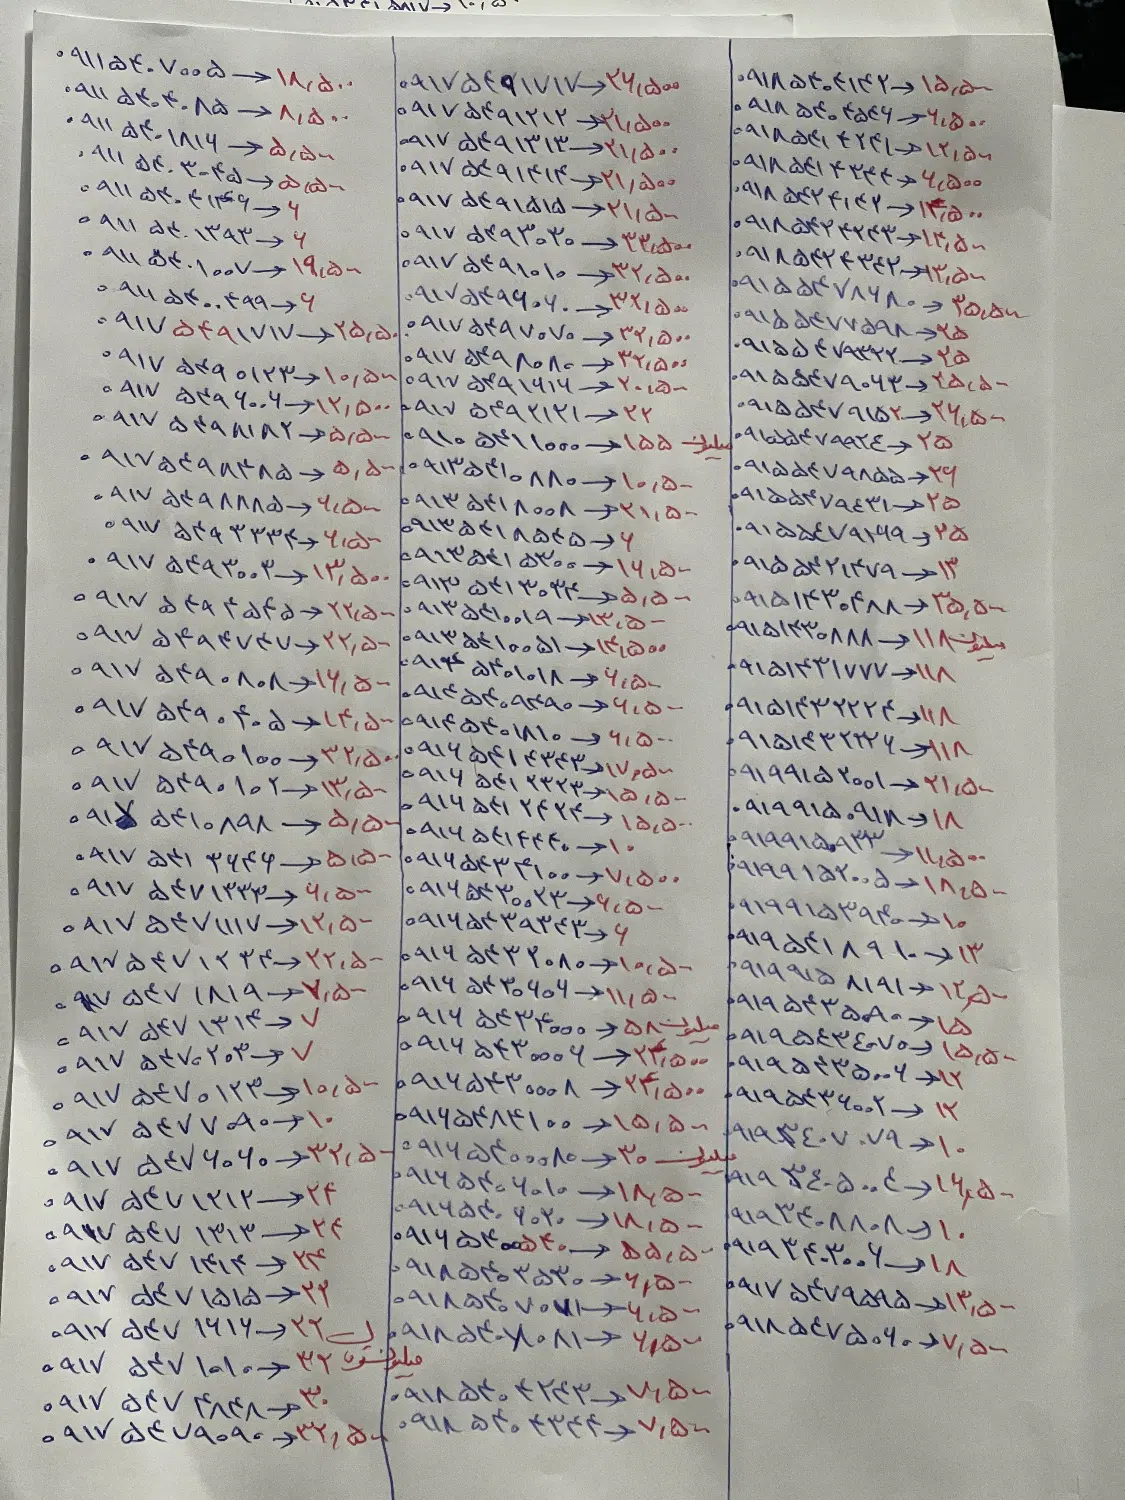 ۰۹۱۱۵۴۰۷۰۰۵ → ۱۸,۵۰۰
۰۹۱۱۵۴۰۴۰۸۵ → ۸,۵۰۰
۰۹۱۱۵۴۰۱۸۱۶ → ۵,۵۰۰
۰۹۱۱۵۴۰۳۰۴۵ → ۵,۵۰۰
۰۹۱۱۵۴۰۱۳۹۳ → ۶
۰۹۱۱۵۴۰۱۰۰۷ → ۱۹,۵۰۰
۰۹۱۱۵۴۰۰۴۹۹ → ۶
۰۹۱۷۵۴۹۱۷۱۷ → ۲۵,۵۰۰
۰۹۱۷۵۴۹۰۱۲۳ → ۱۰,۵۰۰
۰۹۱۷۵۴۹۶۰۰۶ → ۱۲,۵۰۰
۰۹۱۷۵۴۹۸۱۸۲ → ۵,۵۰۰
۰۹۱۷۵۴۹۸۴۸۵ → ۵,۵۰۰
۰۹۱۷۵۴۹۸۸۸۵ → ۶,۵۰۰
۰۹۱۷۵۴۹۳۳۳۴ → ۶,۵۰۰
۰۹۱۷۵۴۹۳۰۰۳ → ۱۳,۵۰۰
۰۹۱۷۵۴۹۴۵۴۵ → ۲۲,۵۰۰
۰۹۱۷۵۴۹۴۷۴۷ → ۲۲,۵۰۰
۰۹۱۷۵۴۹۰۸۰۸ → ۱۶,۵۰۰
۰۹۱۷۵۴۹۰۴۰۵ → ۱۴,۵۰۰
۰۹۱۷۵۴۹۰۱۰۰ → ۳۲,۵۰۰
۰۹۱۷۵۴۹۰۱۰۲ → ۱۳,۵۰۰
۵۴۱۰۸۹۸ → ۵,۵۰۰
۰۹۱۷۵۴۱۲۶۴۶ → ۵,۵۰۰
۰۹۱۷۵۴۷۱۲۳۳ → ۶,۵۰۰
۰۹۱۷۵۴۷۱۱۱۷ → ۱۲,۵۰۰
۰۹۱۷۵۴۷۱۲۳۴ → ۲۲,۵۰۰
۰۹۱۷۵۴۷۱۸۱۹ → ۷,۵۰۰
۰۹۱۷۵۴۷۱۳۱۴ → ۷
۰۹۱۷۵۴۷۰۲۰۳ → ۷
۰۹۱۷۵۴۷۰۱۲۳ → ۱۰,۵۰۰
۰۹۱۷۵۴۷۷۰۹۰ → ۱۰
۰۹۱۷۵۴۷۶۰۶۰ → ۳۲,۵۰۰
۰۹۱۷۵۴۷۱۲۱۲ → ۲۴
۰۹۱۷۵۴۷۱۳۱۳ → ۲۴
۰۹۱۷۵۴۷۱۴۱۴ → ۲۴
۰۹۱۷۵۴۷۱۵۱۵ → ۲۲
۰۹۱۷۵۴۷۱۶۱۶ → ۲۲
۰۹۱۷۵۴۷۱۰۱۰ → ۳۲ میلیون تومان
۰۹۱۷۵۴۷۴۸۴۸ → ۳۰
۰۹۱۷۵۴۷۹۰۹۰ → ۳۲,۵۰۰
۰۹۱۷۵۴۹۱۷۱۷ → ۲۶,۵۰۰
۰۹۱۷۵۴۹۱۲۱۲ → ۲۱,۵۰۰
۰۹۱۷۵۴۹۱۳۱۳ → ۲۱,۵۰۰
۰۹۱۷۵۴۹۱۴۱۴ → ۲۱,۵۰۰
۰۹۱۷۵۴۹۱۵۱۵ → ۲۱,۵۰۰
۰۹۱۷۵۴۹۳۰۳۰ → ۳۳,۵۰۰
۰۹۱۷۵۴۹۱۰۱۰ → ۳۲,۵۰۰
۰۹۱۷۵۴۹۶۰۶۰ → ۳۲,۵۰۰
۰۹۱۷۵۴۹۷۰۷۰ → ۳۲,۵۰۰
۰۹۱۷۵۴۹۸۰۸۰ → ۳۲,۵۰۰
۰۹۱۷۵۴۹۱۶۱۶ → ۲۰,۵۰۰
۰۹۱۷۵۴۹۲۱۲۱ → ۲۲
۰۹۱۰۵۴۱۱۰۰۰ → ۱۵۵ میلیون
۰۹۱۳۵۴۱۰۸۸۰ → ۱۰,۵۰۰
۰۹۱۳۵۴۱۸۰۰۸ → ۲۱,۵۰۰
۰۹۱۳۵۴۱۸۵۴۵ → ۶
۰۹۱۳۵۴۱۵۳۰۰ → ۱۶,۵۰۰
۰۹۱۳۵۴۱۳۰۳۴ → ۵,۵۰۰
۰۹۱۳۵۴۱۰۰۱۹ → ۱۳,۵۰۰
۰۹۱۳۵۴۱۰۰۵۱ → ۱۴,۵۰۰
۰۹۱۴۵۴۰۱۰۱۸ → ۶,۵۰۰
۰۹۱۴۵۴۰۹۴۹۰ → ۶,۵۰۰
۰۹۱۴۵۴۰۱۸۱۰ → ۶,۵۰۰
۰۹۱۶۵۴۱۴۳۴۳ → ۱۷,۵۰۰
۰۹۱۶۵۴۱۲۳۲۳ → ۱۵,۵۰۰
۰۹۱۶۵۴۱۲۴۲۴ → ۱۵,۵۰۰
۰۹۱۶۵۴۱۴۴۴۰ → ۱۰
۰۹۱۶۵۴۳۴۱۰۰ → ۷,۵۰۰
۰۹۱۶۵۴۳۰۰۲۳ → ۶,۵۰۰
۰۹۱۶۵۴۳۹۳۴۳ → ۶
۰۹۱۶۵۴۳۲۰۸۰ → ۱۰,۵۰۰
۰۹۱۶۵۴۳۰۶۰۶ → ۱۱,۵۰۰
۰۹۱۶۵۴۳۴۰۰۰ → ۵۸ میلیون
۰۹۱۶۵۴۳۰۰۰۶ → ۲۴,۵۰۰
۰۹۱۶۵۴۳۰۰۰۸ → ۲۴,۵۰۰
۰۹۱۶۵۴۸۴۱۰۰ → ۱۵,۵۰۰
۰۹۱۶۵۴۰۰۰۸۰ → ۳۰ میلیون
۰۹۱۶۵۴۰۶۰۱۰ → ۱۸,۵۰۰
۰۹۱۶۵۴۰۶۰۲۰ → ۱۸,۵۰۰
۰۹۱۶۵۴۰۰۵۴۰ → ۵۵,۵۰۰
۰۹۱۸۵۴۰۳۵۳۰ → ۶,۵۰۰
۰۹۱۸۵۴۰۷۰۷۱ → ۶,۵۰۰
۰۹۱۸۵۴۰۸۰۸۱ → ۶,۵۰۰
۰۹۱۸۵۴۰۴۲۴۳ → ۷,۵۰۰
۰۹۱۸۵۴۰۴۳۴۴ → ۷,۵۰۰
۰۹۱۸۵۴۰۴۱۴۲ → ۱۵,۵۰۰
۰۹۱۸۵۴۰۴۵۴۶ → ۶,۵۰۰
۰۹۱۸۵۴۱۴۲۴۱ → ۱۲,۵۰۰
۰۹۱۸۵۴۱۴۳۴۴ → ۶,۵۰۰
۰۹۱۸۵۴۲۴۱۴۲ → ۱۴,۵۰۰
۰۹۱۸۵۴۲۴۲۴۳ → ۱۲,۵۰۰
۰۹۱۸۵۴۲۴۳۴۲ → ۱۲,۵۰۰
۰۹۱۵۵۴۷۸۶۸۰ → ۲۵,۵۰۰
۰۹۱۵۵۴۷۷۵۹۸ → ۲۵
۰۹۱۵۵۴۷۹۳۲۲ → ۲۵
۰۹۱۵۵۴۷۹۰۶۳ → ۲۵,۵۰۰
۰۹۱۵۵۴۷۹۱۵۲ → ۲۶,۵۰۰
۰۹۱۵۵۴۷۹۹۲۴ → ۲۵
۰۹۱۵۵۴۷۹۸۵۵ → ۲۶
۰۹۱۵۵۴۷۹۴۳۱ → ۲۵
۰۹۱۵۵۴۷۹۱۶۹ → ۲۵
۰۹۱۵۵۴۲۱۴۷۹ → ۱۳
۰۹۱۵۱۴۳۰۴۸۸ → ۲۵,۵۰۰
۰۹۱۵۱۴۳۰۸۸۸ → ۱۱۸ میلیون
۰۹۱۵۱۴۳۱۷۷۷ → ۱۱۸
۰۹۱۵۱۴۳۲۲۲۴ → ۱۱۸
۰۹۱۵۱۴۳۲۲۲۶ → ۱۱۸
۰۹۱۹۹۱۵۲۰۰۱ → ۲۱,۵۰۰
۰۹۱۹۹۱۵۰۹۱۸ → ۱۸
۰۹۱۹۹۱۵۰۹۲۳ → ۱۱,۵۰۰
۰۹۱۹۹۱۵۲۰۰۵ → ۱۸,۵۰۰
۰۹۱۹۹۱۵۳۹۴۰ → ۱۰
۰۹۱۹۵۴۱۸۹۱۰ → ۱۳
۰۹۱۹۹۱۵۸۱۹۱ → ۱۲,۵۰۰
۰۹۱۹۵۴۳۵۰۹۰ → ۱۵
۰۹۱۹۵۴۳۴۰۷۰ → ۱۵,۵۰۰
۰۹۱۹۵۴۳۵۰۰۶ → ۱۲
۰۹۱۹۵۴۳۶۰۰۲ → ۱۲
۰۹۱۹۳۴۰۷۰۷۹ → ۱۰
۰۹۱۹۳۴۰۵۰۰۴ → ۱۶,۵۰۰
۰۹۱۹۳۴۰۸۸۰۸ → ۱۰
۰۹۱۹۳۴۰۳۰۰۶ → ۱۸
۰۹۱۷۵۴۷۹۵۹۵ → ۱۳,۵۰۰
۰۹۱۸۵۴۷۵۰۶۰ → ۷,۵۰۰